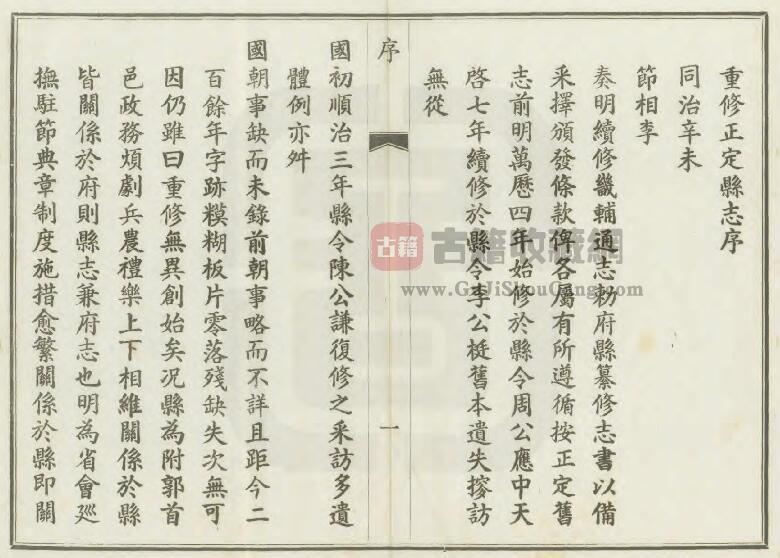 重修正定縣志序
同治辛未
節相李
奏明續修畿輔通志勑府縣纂修志書以備
采擇頒發條款俾各屬有所遵循按正定舊
志前明萬歷四年始修於縣令周公應中天
啓七年續修於縣令李公梃舊本遺失搜訪
無從
序
一
國初順治三年縣令陳公謙復修之采訪多遺
體例亦舛
國朝事缺而未錄前朝事略而不詳且距今二
百餘年字跡糢糊板片零落殘缺失次無可
因仍雖曰重修無異創始矣况縣為附郭首
邑政務煩劇兵農禮樂上下相維關係於縣
皆關係於府則縣志兼府志也明為省會廵
撫駐節典章制度施措愈繁關係於縣即關
古籍 古籍收藏網
www.GuJiShouCang.com